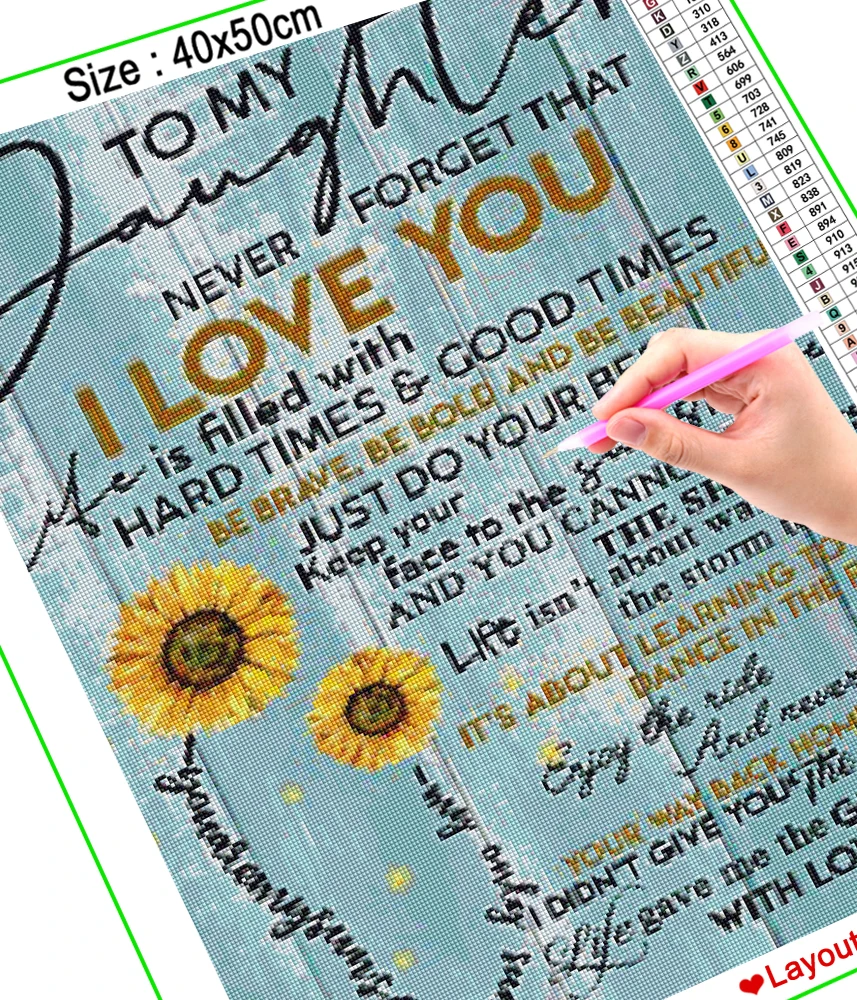 Size : 40x50cm
TO MY
Daughter
NEVER FORGET THAT
I LOVE YOU
life is filled with
HARD TIMES & GOOD TIMES
BE BRAVE, BE BOLD AND BE BEAUTIFU
JUST DO YOUR BE
Keep your
face to the
AND YOU CANNO
THE SH
Life isn't about wa
the storm
IT'S ABOUT LEARNING TO
DANCE IN THE
Enjoy the ride
And never
YOUR WAY BACK HOM
I DIDN'T GIVE YOU The
Life gave me the G
WITH LO
you are my sunshi
my only su
G
K
D 310
Y 318
Z 413
R 564
V 606
T 699
5 703
6 728
8 741
U 745
L 809
3 819
M 823
X 838
F 891
E 894
S 910
4 913
J 915
B
Q
9
A
Layout